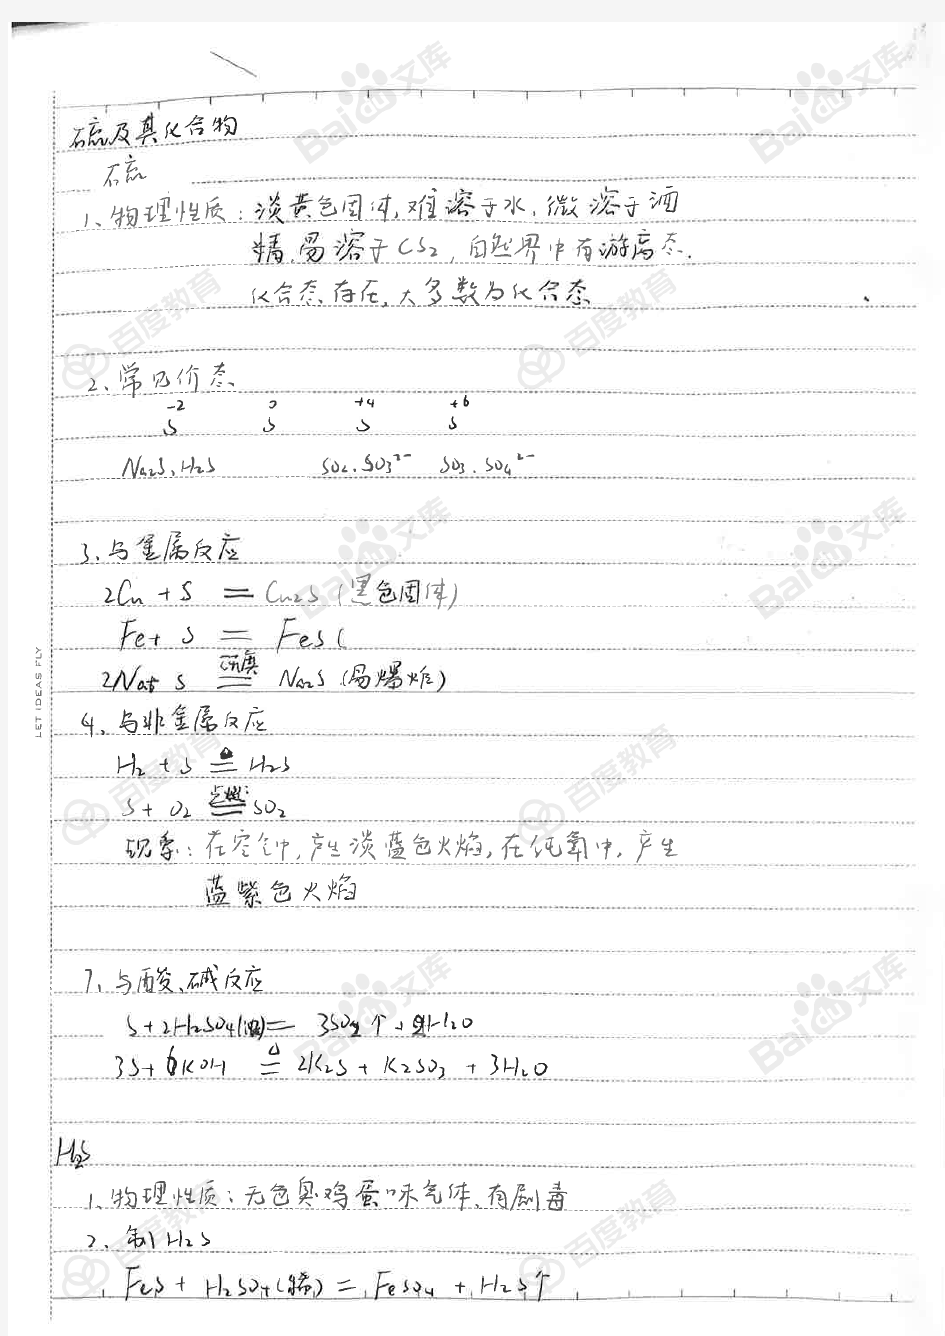 硫及其化合物
硫
1、物理性质：淡黄色固体,难溶于水,微溶于酒
精,易溶于CS2,自然界中有游离态.
化合态存在,大多数为化合态
2、常见价态
-2 0 +4 +6
S S S S
Na2S、H2S SO2、SO3²⁻ SO3、SO4²⁻
3、与金属反应
2Cu + S = Cu2S (黑色固体)
Fe + S = FeS (
研真
2Na + S = Na2S (易爆炸)
4、与非金属反应
H2 + S = H2S
点燃
S + O2 = SO2
现象：在空气中,产生淡蓝色火焰,在纯氧中,产生
蓝紫色火焰
7、与酸、碱反应
S+2H2SO4(浓)= 3SO2↑+2H2O
△
3S+6KOH = 2K2S + K2SO3 + 3H2O
H2S
1、物理性质：无色臭鸡蛋味气体、有剧毒
2、制H2S
FeS + H2SO4(稀) = FeSO4 + H2S↑
LET IDEAS FLY
Baidu文库
百度教育